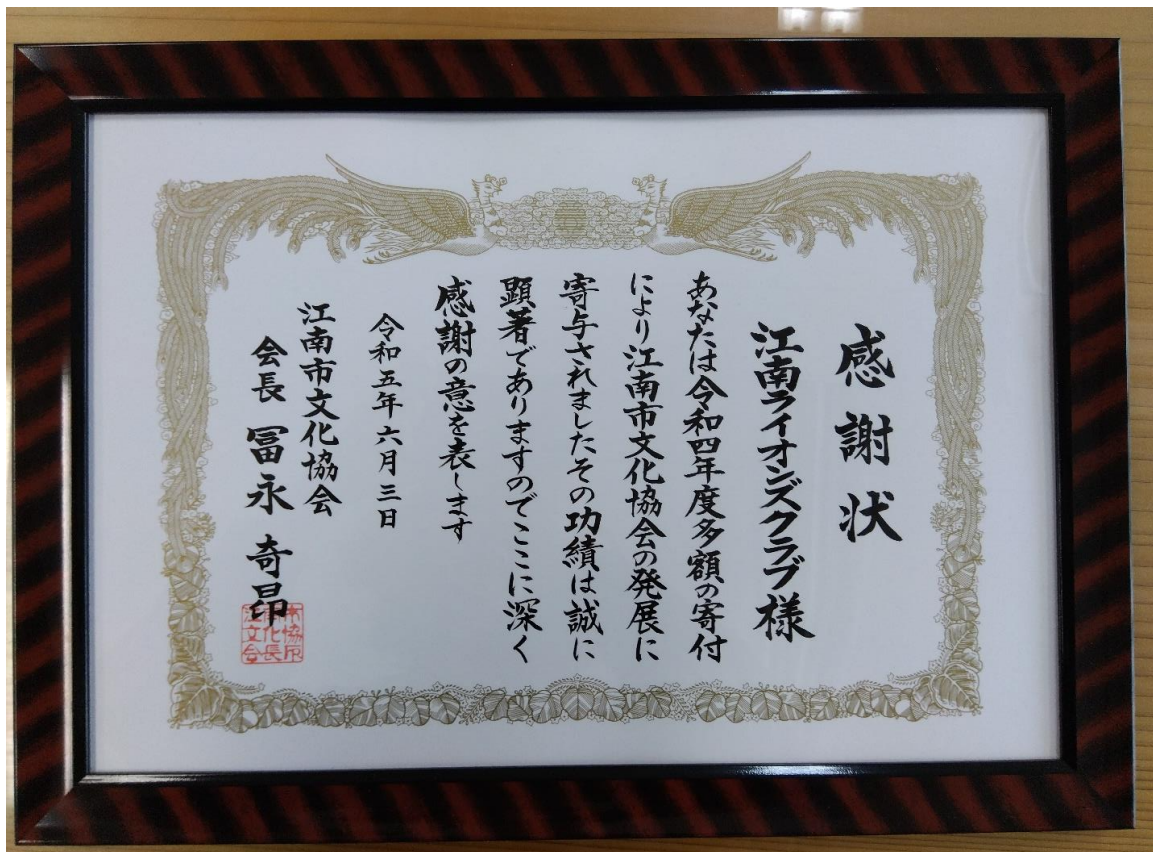 感謝状
江南ライオンズクラブ様
あなたは令和四年度多額の寄付
により江南市文化協会の発展に
寄与されましたその功績は誠に
顕著でありますのでここに深く
感謝の意を表します
令和五年六月三日
江南市文化協会
会長 冨永奇昂